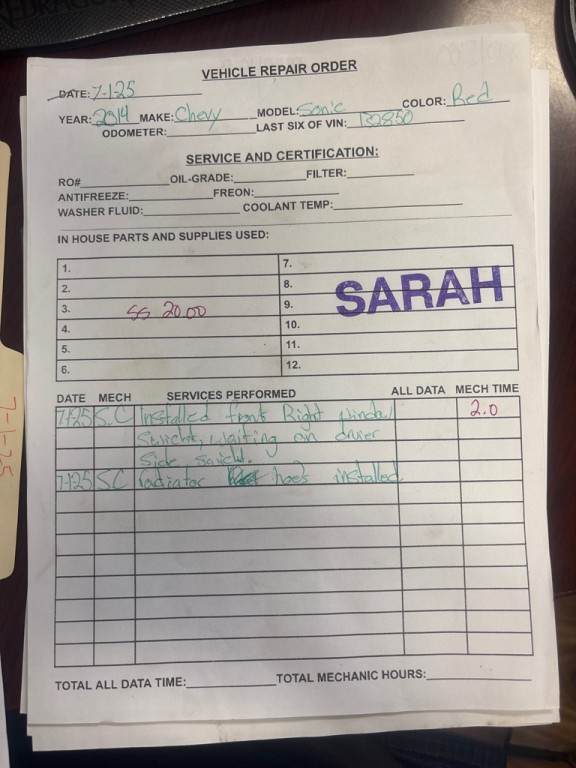 VEHICLE REPAIR ORDER
DATE: 7-1-25
YEAR: 2014 MAKE: Chevy MODEL: Sonic COLOR: Red
ODOMETER: LAST SIX OF VIN: 132850
SERVICE AND CERTIFICATION:
RO# OIL-GRADE: FILTER:
ANTIFREEZE: FREON:
WASHER FLUID: COOLANT TEMP:
IN HOUSE PARTS AND SUPPLIES USED:
1. 7.
2. 8.
3. SS 20.00 9.
SARAH
4. 10.
5. 11.
6. 12.
DATE MECH SERVICES PERFORMED ALL DATA MECH TIME
7-1-25 S.C Installed front Right window 2.0
Switch, waiting on driver
Side switch.
7-1-25 SC radiator hoes installed
TOTAL ALL DATA TIME: TOTAL MECHANIC HOURS:
7-1-25